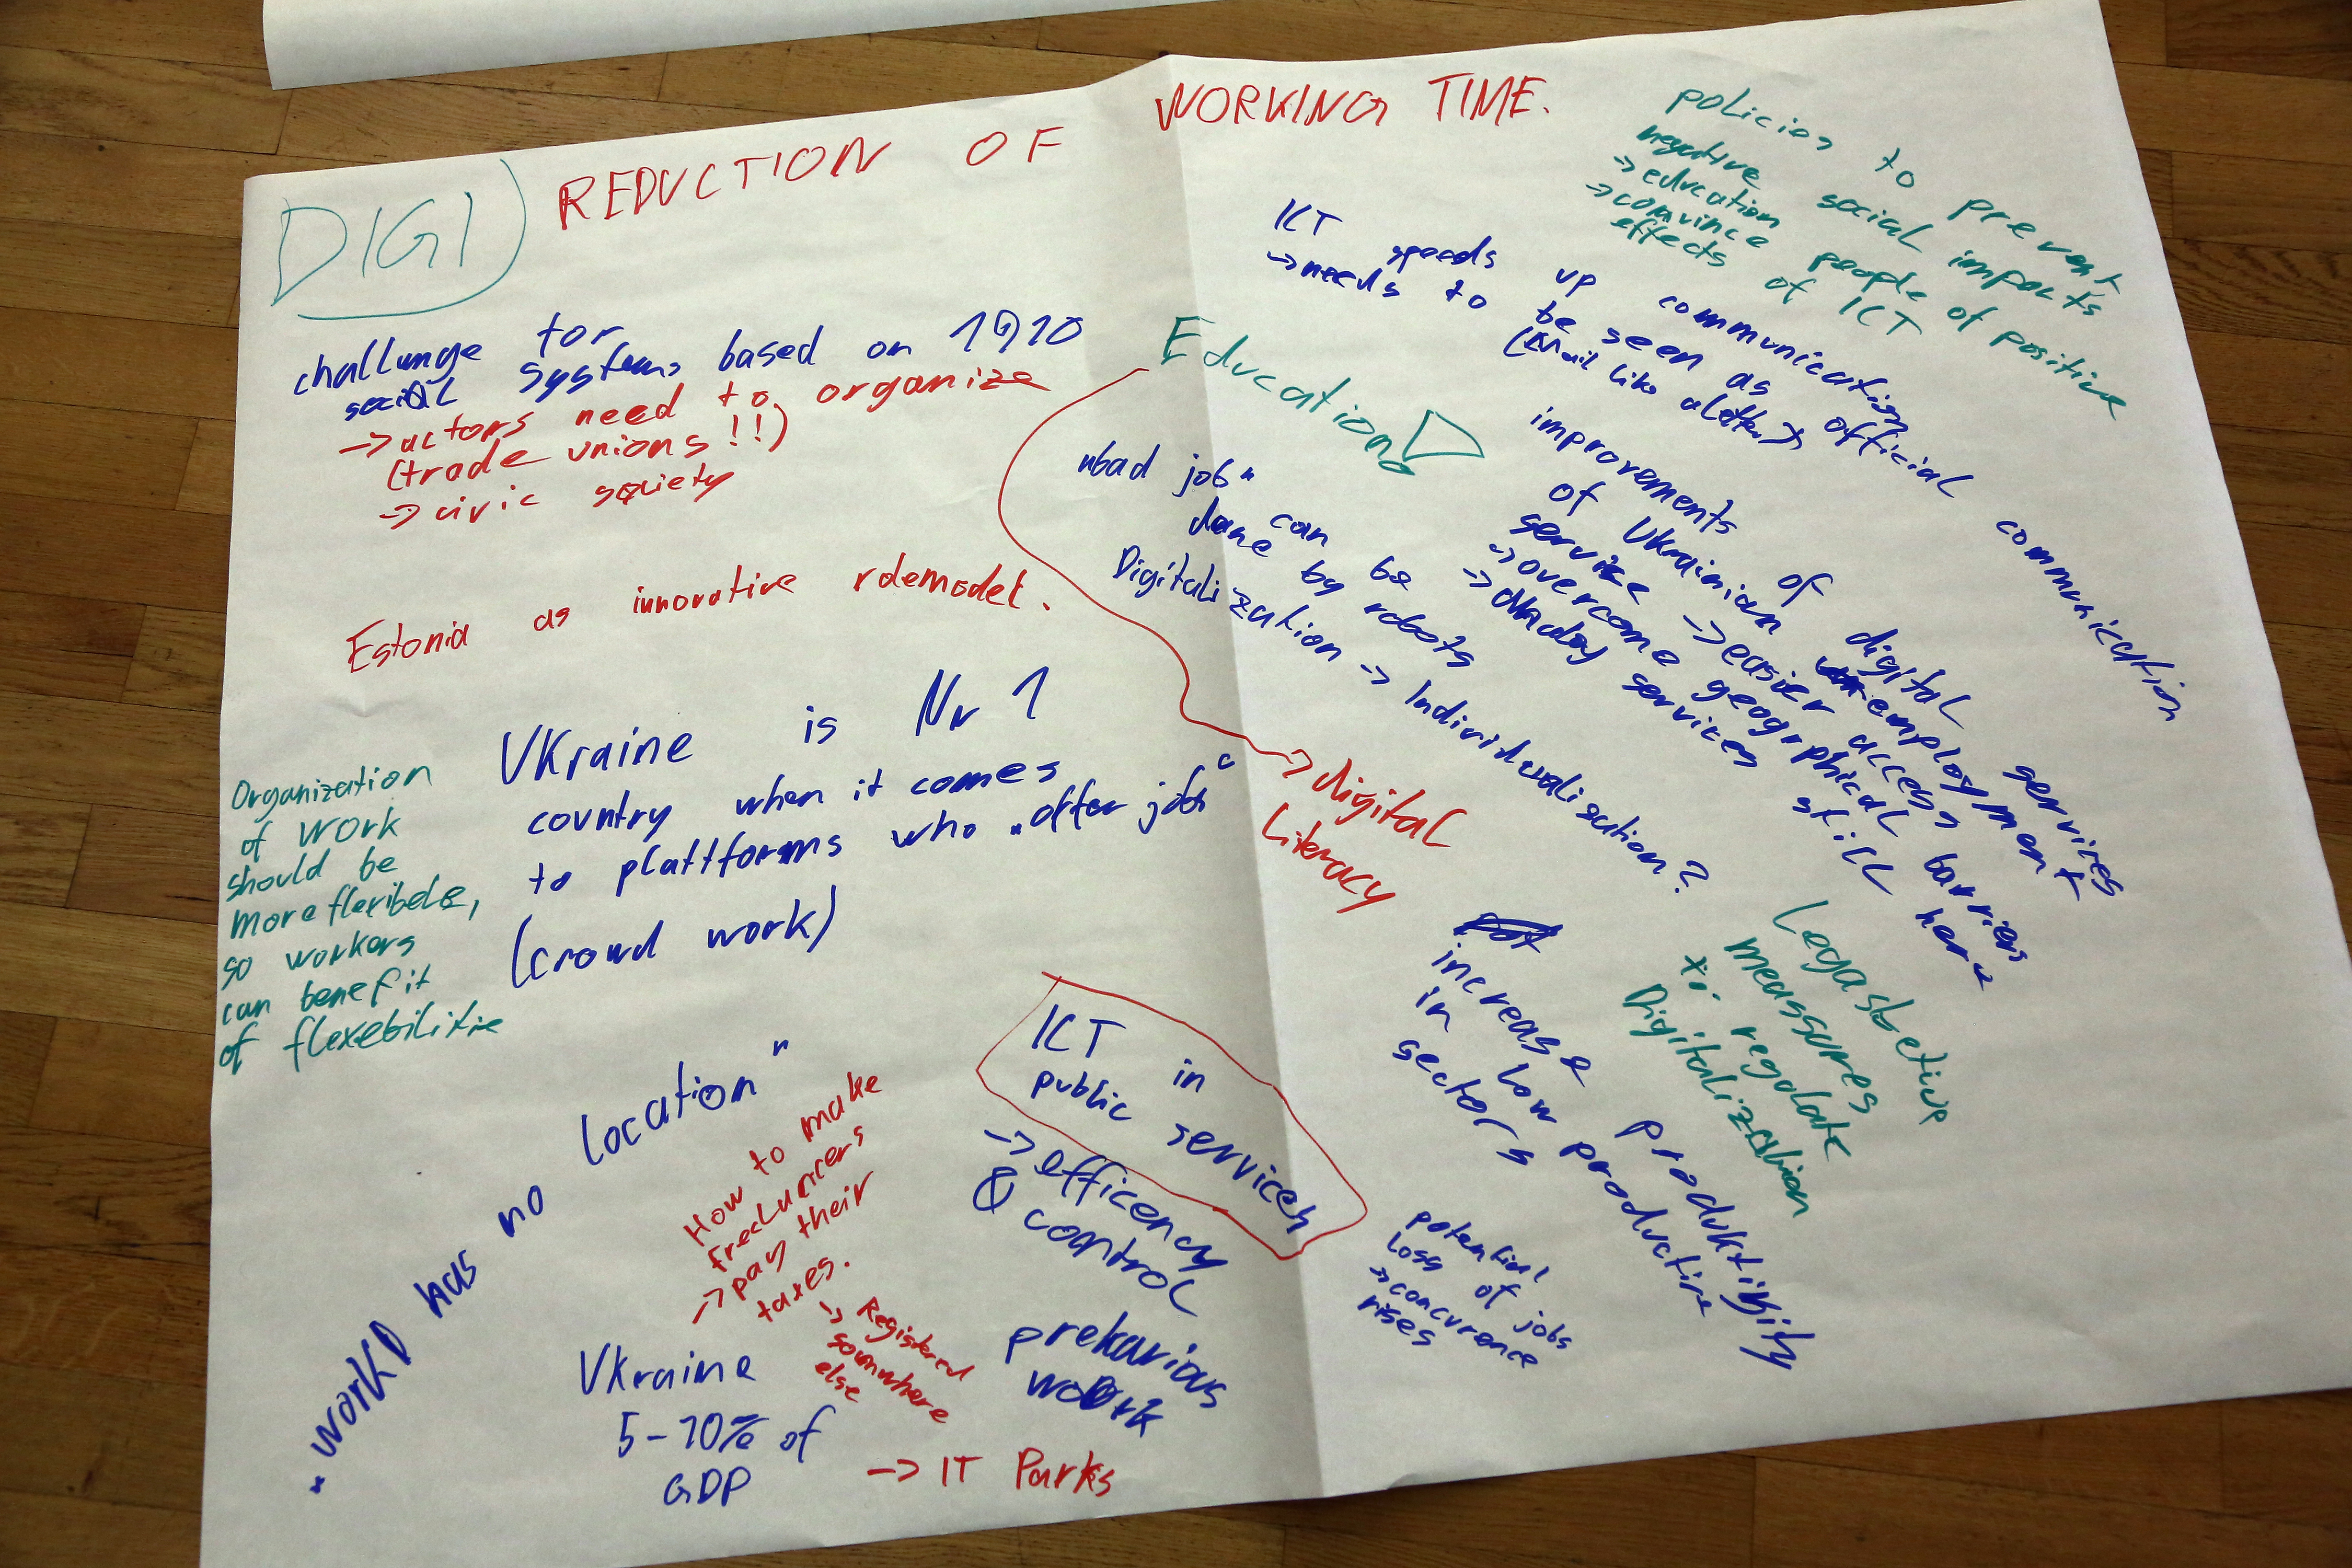 DIGI
REDUCTION OF WORKING TIME.
challunge for
social systems based on 1910
-> actors need to organize
(trade unions!!)
-> civic society
Estonia as innovative rolemodel.
Ukraine is Nr 1
country when it comes
to plattforms who "offer jobs"
(crowd work)
Organization
of work
should be
more flexibele,
so workers
can benefit
of flexebilitie
"work has no location"
How to make
freeluncers
-> pay their
taxes.
-> Registered
somwhere
else
Ukraine
5-10% of
GDP
-> IT Parks
ICT in
public services
-> efficency
& control
prekarious
work
policies to prevent
negative social impacts
-> education
-> convince people of positive
effects of ICT
ICT speeds up communication
-> needs to be seen as official communication
Education
"bad job" can be
done by robots
Digitalization -> Individualization?
-> digital
Literacy
improvements of digital services
of Ukrainian employment
service -> easier access
-> overcome geographical barriers
services still here
increase produktivity
in low productive
sectors
measures
regulate
Digitalization
potential
loss of jobs
-> concurence
rises